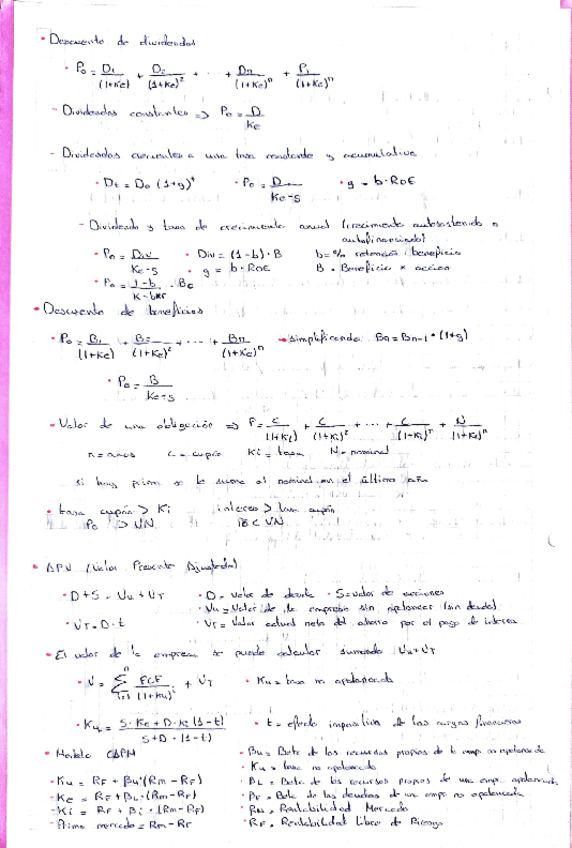 • Descuento de dividendos
• P₀ = D₁/(1+Ke) + D₂/(1+Ke)² + ... + Dn/(1+Ke)ⁿ + P₁/(1+Ke)ⁿ
- Dividendos constantes => P₀ = D/Ke
- Dividendos crecientes a una tasa constante y acumulativa
• Dt = D₀ (1+g)ᵗ • P₀ = D/Ke-g • g = b·ROE
- Dividendo y tasa de crecimiento anual (crecimiento autosostenido o
autofinanciado)
• P₀ = Div/Ke-g • Div = (1-b)·B b = % retención beneficio
• g = b·ROE B = Beneficio x accion
• P₀ = 1-b/K-bxr · B₀
• Descuento de beneficios
• P₀ = B₁/(1+Ke) + B₂/(1+Ke)² + ... + Bn/(1+Ke)ⁿ → simplificando Bn = Bn-1 * (1+g)
• P₀ = B/Ke-g
• Valor de una obligación => P = C/(1+Ki) + C/(1+Ki)² + ... + C/(1+Ki)ⁿ + N/(1+Ki)ⁿ
n = años C = cupón Ki = tasa N = nominal
si hay prima se le suma al nominal en el último año
• tasa cupón > Ki interes > tasa cupón
P₀ > VN < VN
• APV (Valor Presente Ajustado)
• D+S = Vu + VT • D = valor de deuda • S = valor de acciones
• Vu = Valor de la empresa sin apalancar (sin deuda)
• VT = D·t • VT = Valor actual neto del ahorro por el pago de interes
• El valor de la empresa se puede calcular sumando Vu + VT
• V = Σ FCF/(1+Ku)ⁱ + VT • Ku = tasa no apalancada
• Ku = S·Ke + D·Ki(1-t)/S+D·(1-t) • t = efecto impositivo de las cargas financieras
• Modelo CAPM • Bu = Beta de los recursos propios de la emp no apalancada
• Ku = tasa no apalancada
• Ku = RF + Bu·(Rm - RF) • BL = Beta de los recursos propios de una emp. apalancada
• Ke = RF + BL·(Rm - RF) • Beta de las deudas de una emp no apalancada
• Ki = RF + Bi·(Rm - RF) • Rm = Rentabilidad Mercado
• Prima mercado = Rm - RF • RF = Rentabilidad Libre de Riesgo